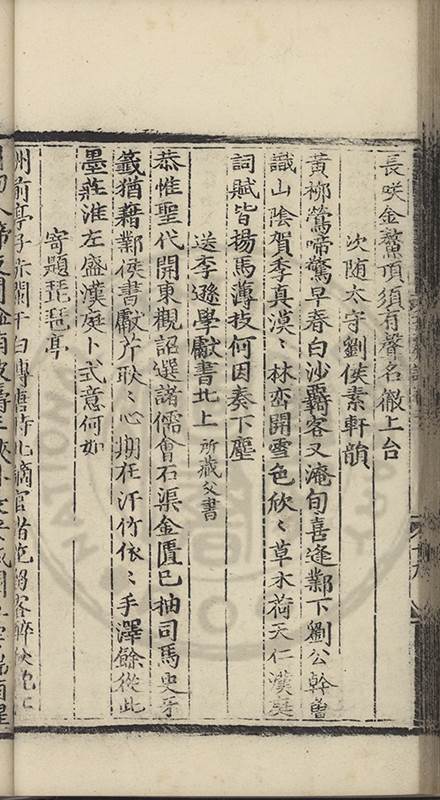 長咲金鰲頂須有聲名徹上台
次随太守劉侯素軒韻
黄柳鶯啼驚早春白沙覊客又淹旬喜逢鄴下劉公幹曽
識山陰賀季真漠〻林峦開雪色欣〻草木荷天仁漢庭
詞賦皆揚馬薄技何因奏下塵
送李遜學獻書北上所藏父書
恭惟聖代開東觀詔選諸儒會石渠金匱已抽司馬史牙
籤猶藉鄴侯書獻芹耿〻心期在汗竹依〻手澤餘從此
墨莊淮左盛漢庭卜式意何如
寄題琵琶亭